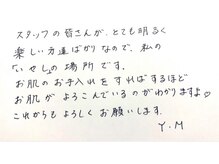 スタッフの皆さんが、とても明るく
楽しい方達ばかりなので、私の
"いやし"の場所です。
お肌のお手入れをすればするほど
お肌がよろこんでいるのがわかりますよ♡
これからもよろしくお願いします。
Y.M